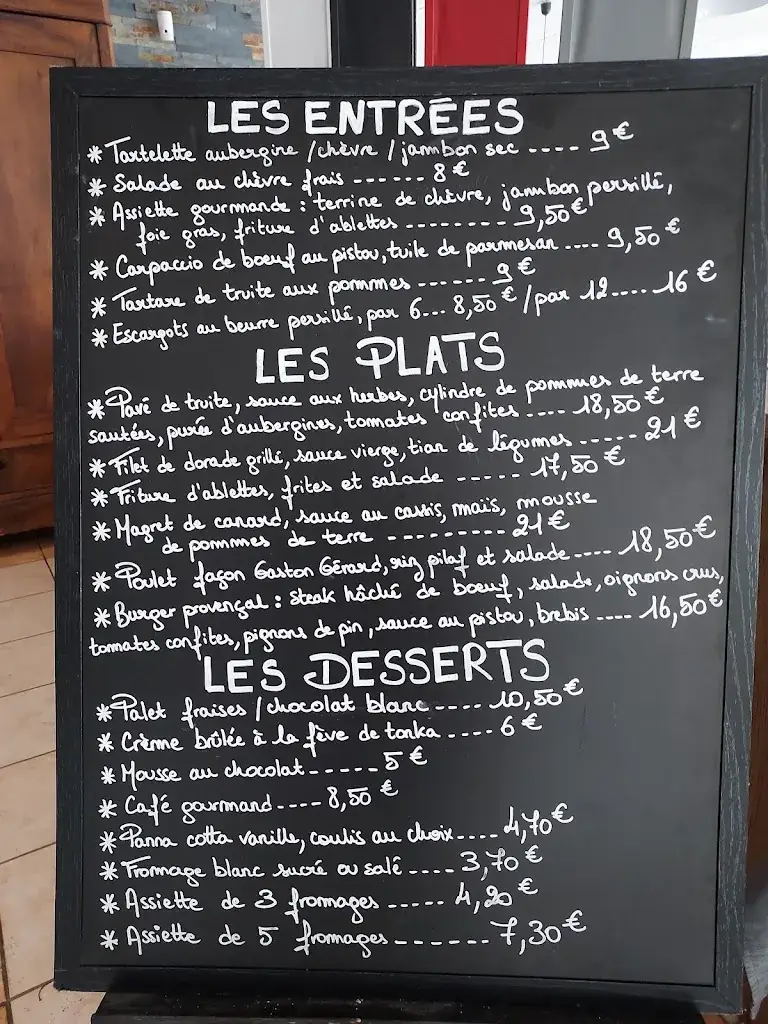 LES ENTRÉES
* Tartelette aubergine / chèvre / jambon sec ---- 9€
* Salade au chèvre frais ------ 8€
* Assiette gourmande : terrine de chèvre, jambon persillé,
foie gras, friture d'ablettes --------- 9,50€
* Carpaccio de boeuf au pistou, tuile de parmesan ---- 9,50€
* Tartare de truite aux pommes ------- 9€
* Escargots au beurre persillé, par 6... 8,50€ / par 12.... 16€
LES PLATS
* Pavé de truite, sauce aux herbes, cylindre de pommes de terre
sautées, purée d'aubergines, tomates confites ---- 18,50€
* Filet de dorade grillé, sauce vierge, tian de légumes ----- 21€
* Friture d'ablettes, frites et salade ----- 17,50€
* Magret de canard, sauce au cassis, maïs, mousse
de pommes de terre --------- 21€
* Poulet façon Gaston Gérard, riz pilaf et salade ---- 18,50€
* Burger provençal : steak hâché de boeuf, salade, oignons crus,
tomates confites, pignons de pin, sauce au pistou, brebis ---- 16,50€
LES DESSERTS
* Palet fraises / chocolat blanc ---- 10,50€
* Crème brûlée à la fève de tonka ---- 6€
* Mousse au chocolat ------ 5€
* Café gourmand ---- 8,50€
* Panna cotta vanille, coulis au choix ---- 4,70€
* Fromage blanc sucré ou salé ---- 3,70€
* Assiette de 3 fromages ----- 4,20€
* Assiette de 5 fromages ------- 7,30€